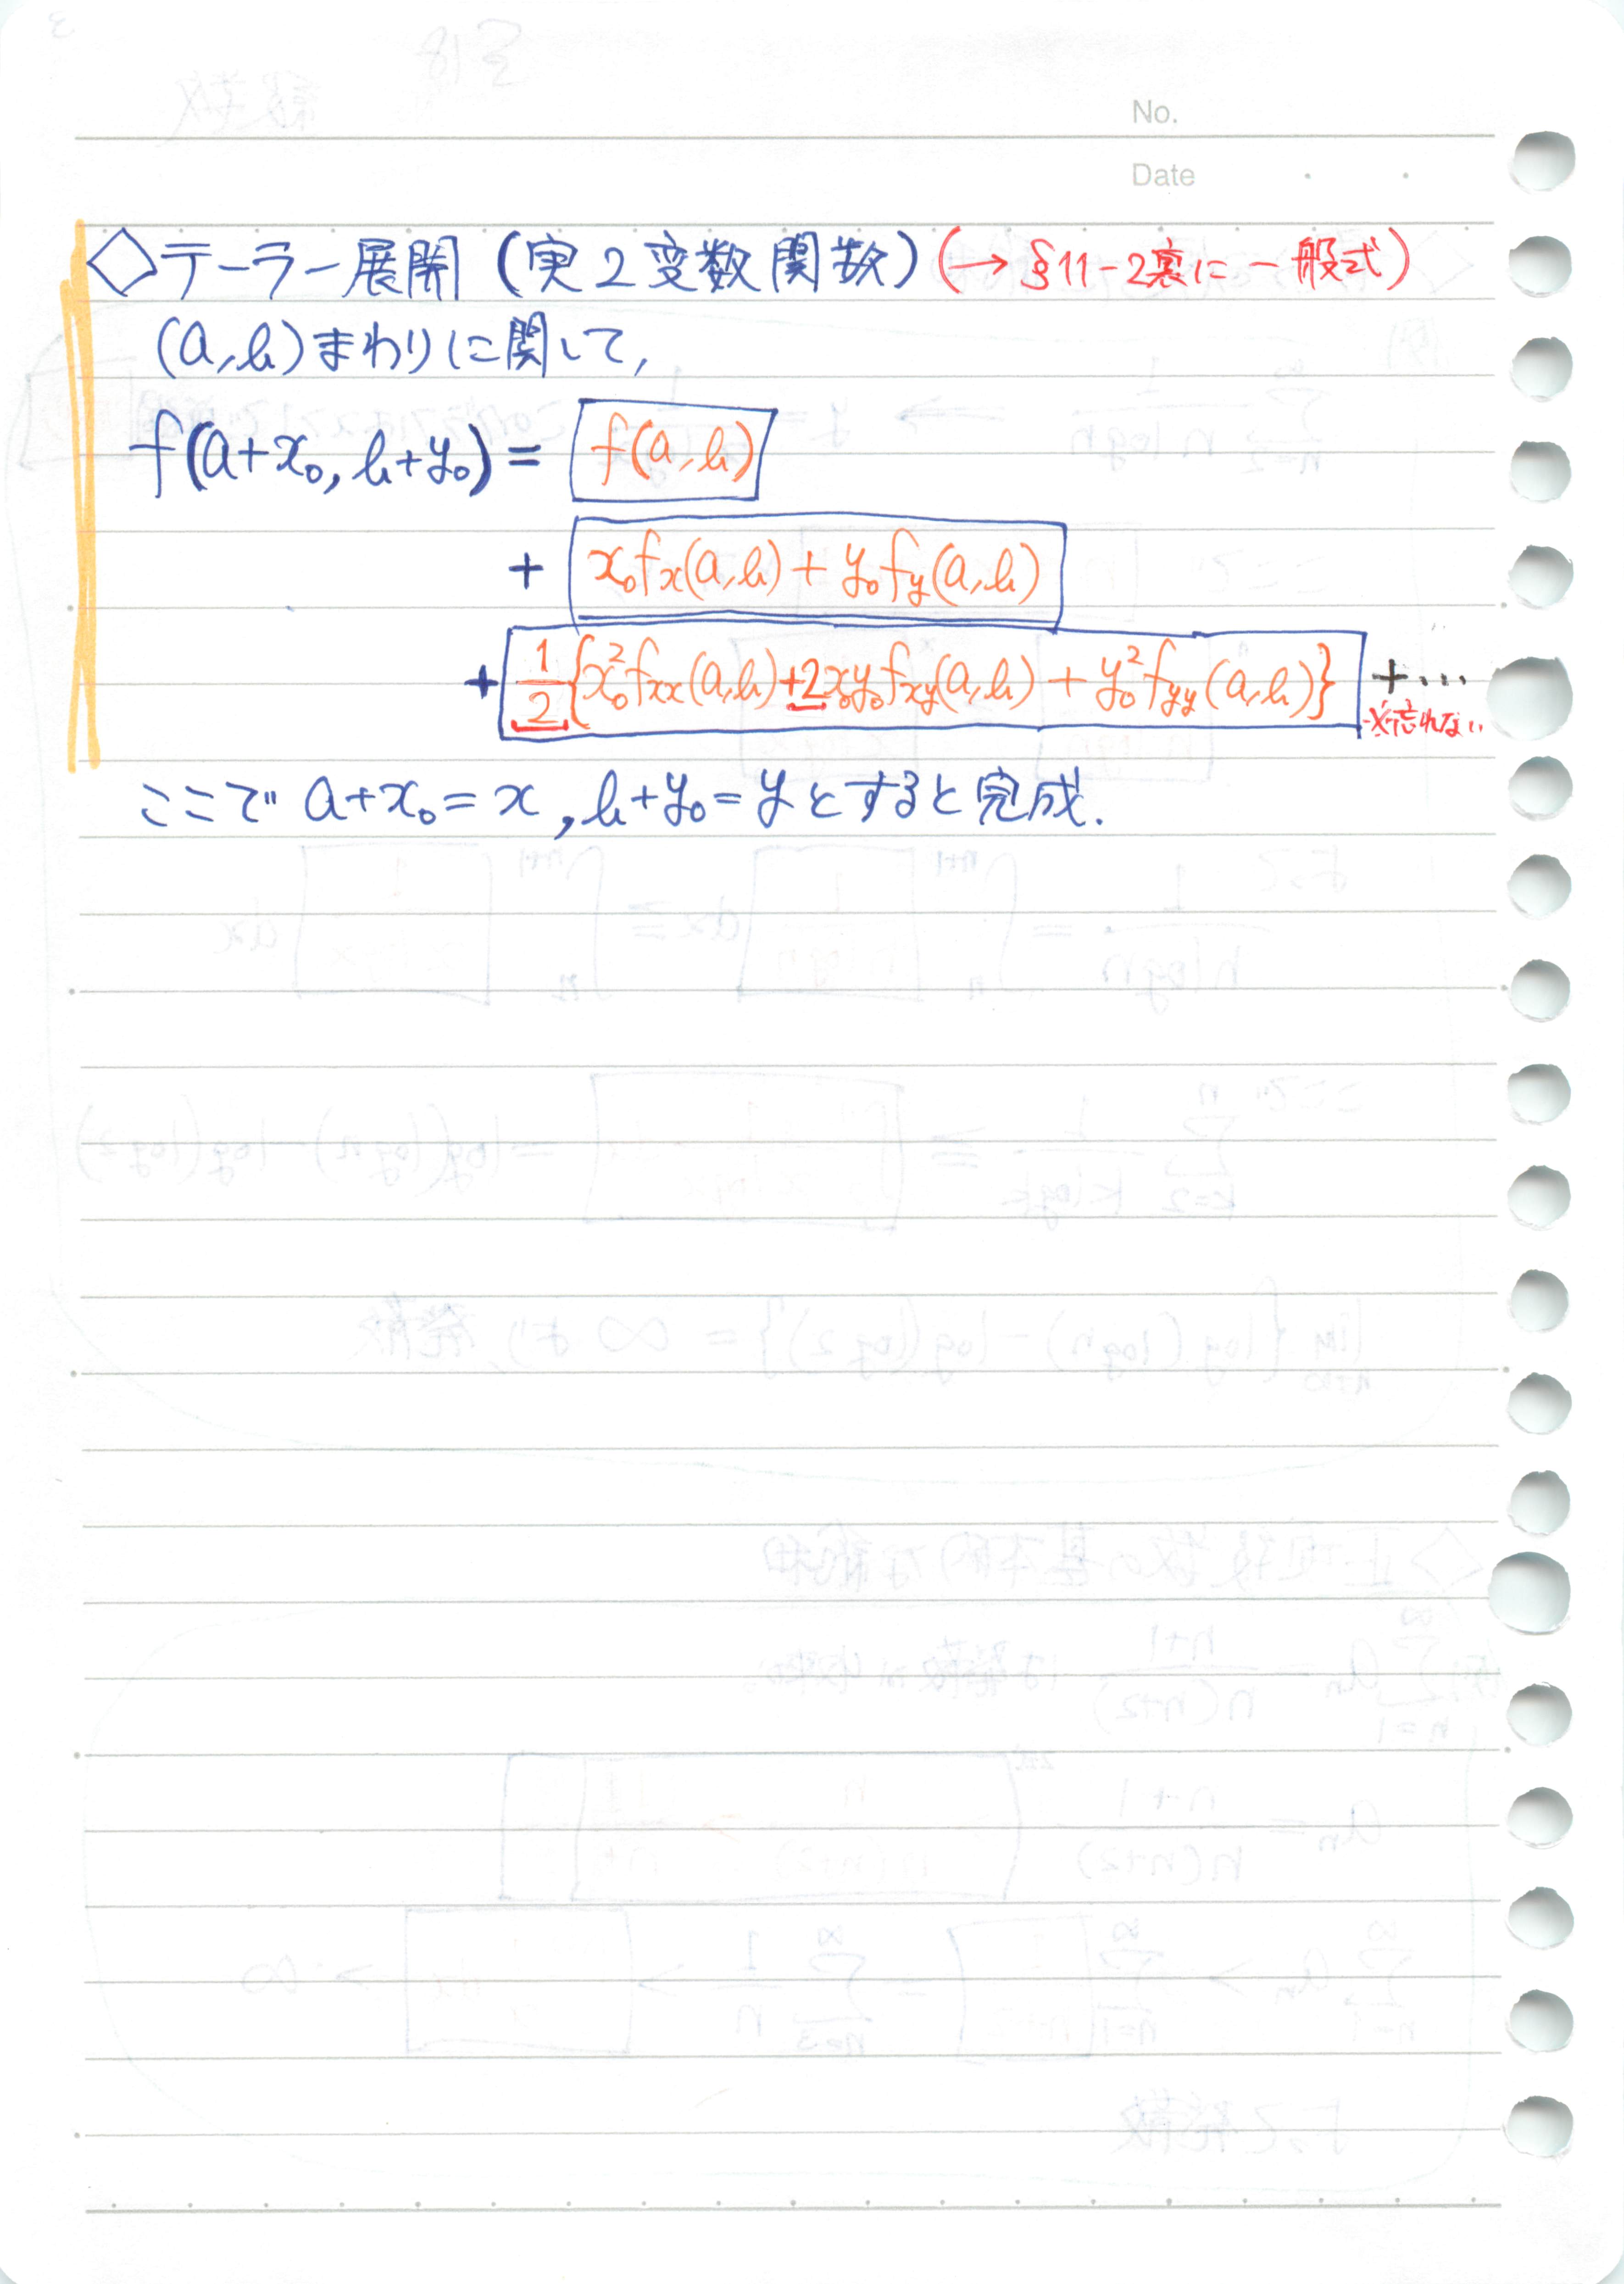 No.
Date
◇テーラー展開(実2変数関数)(→§11-2裏に一般式)
(a,b)まわりに関して,
f(a+x₀, b+y₀) = f(a,b)
+ x₀fx(a,b) + y₀fy(a,b)
+ 1/2{x₀²fxx(a,b)+2x₀y₀fxy(a,b) + y₀²fyy(a,b)} +…
※忘れない
ここで a+x₀=x, b+y₀=yとすると完成.